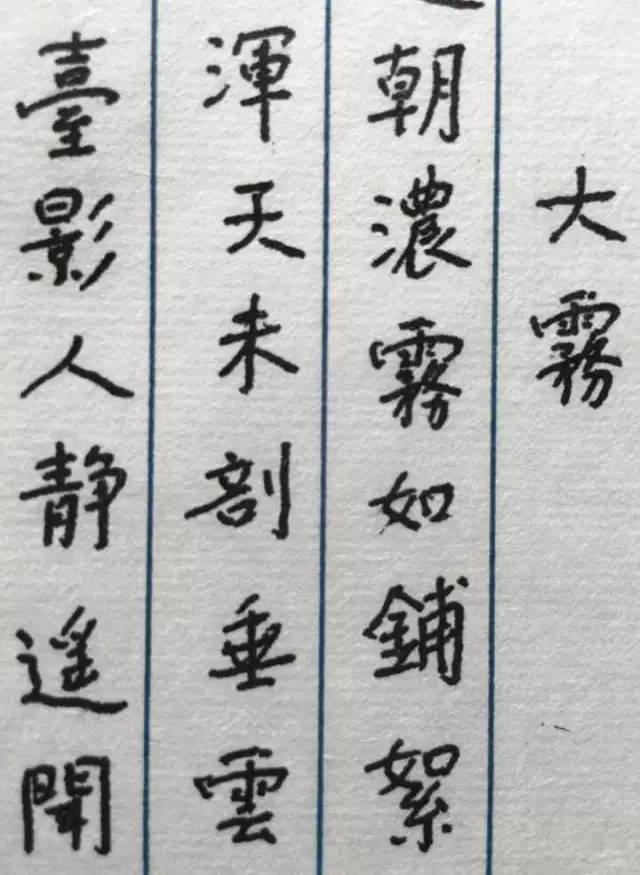 大霧
朝濃霧如鋪絮
渾天未剖垂雲
臺影人靜遥聞